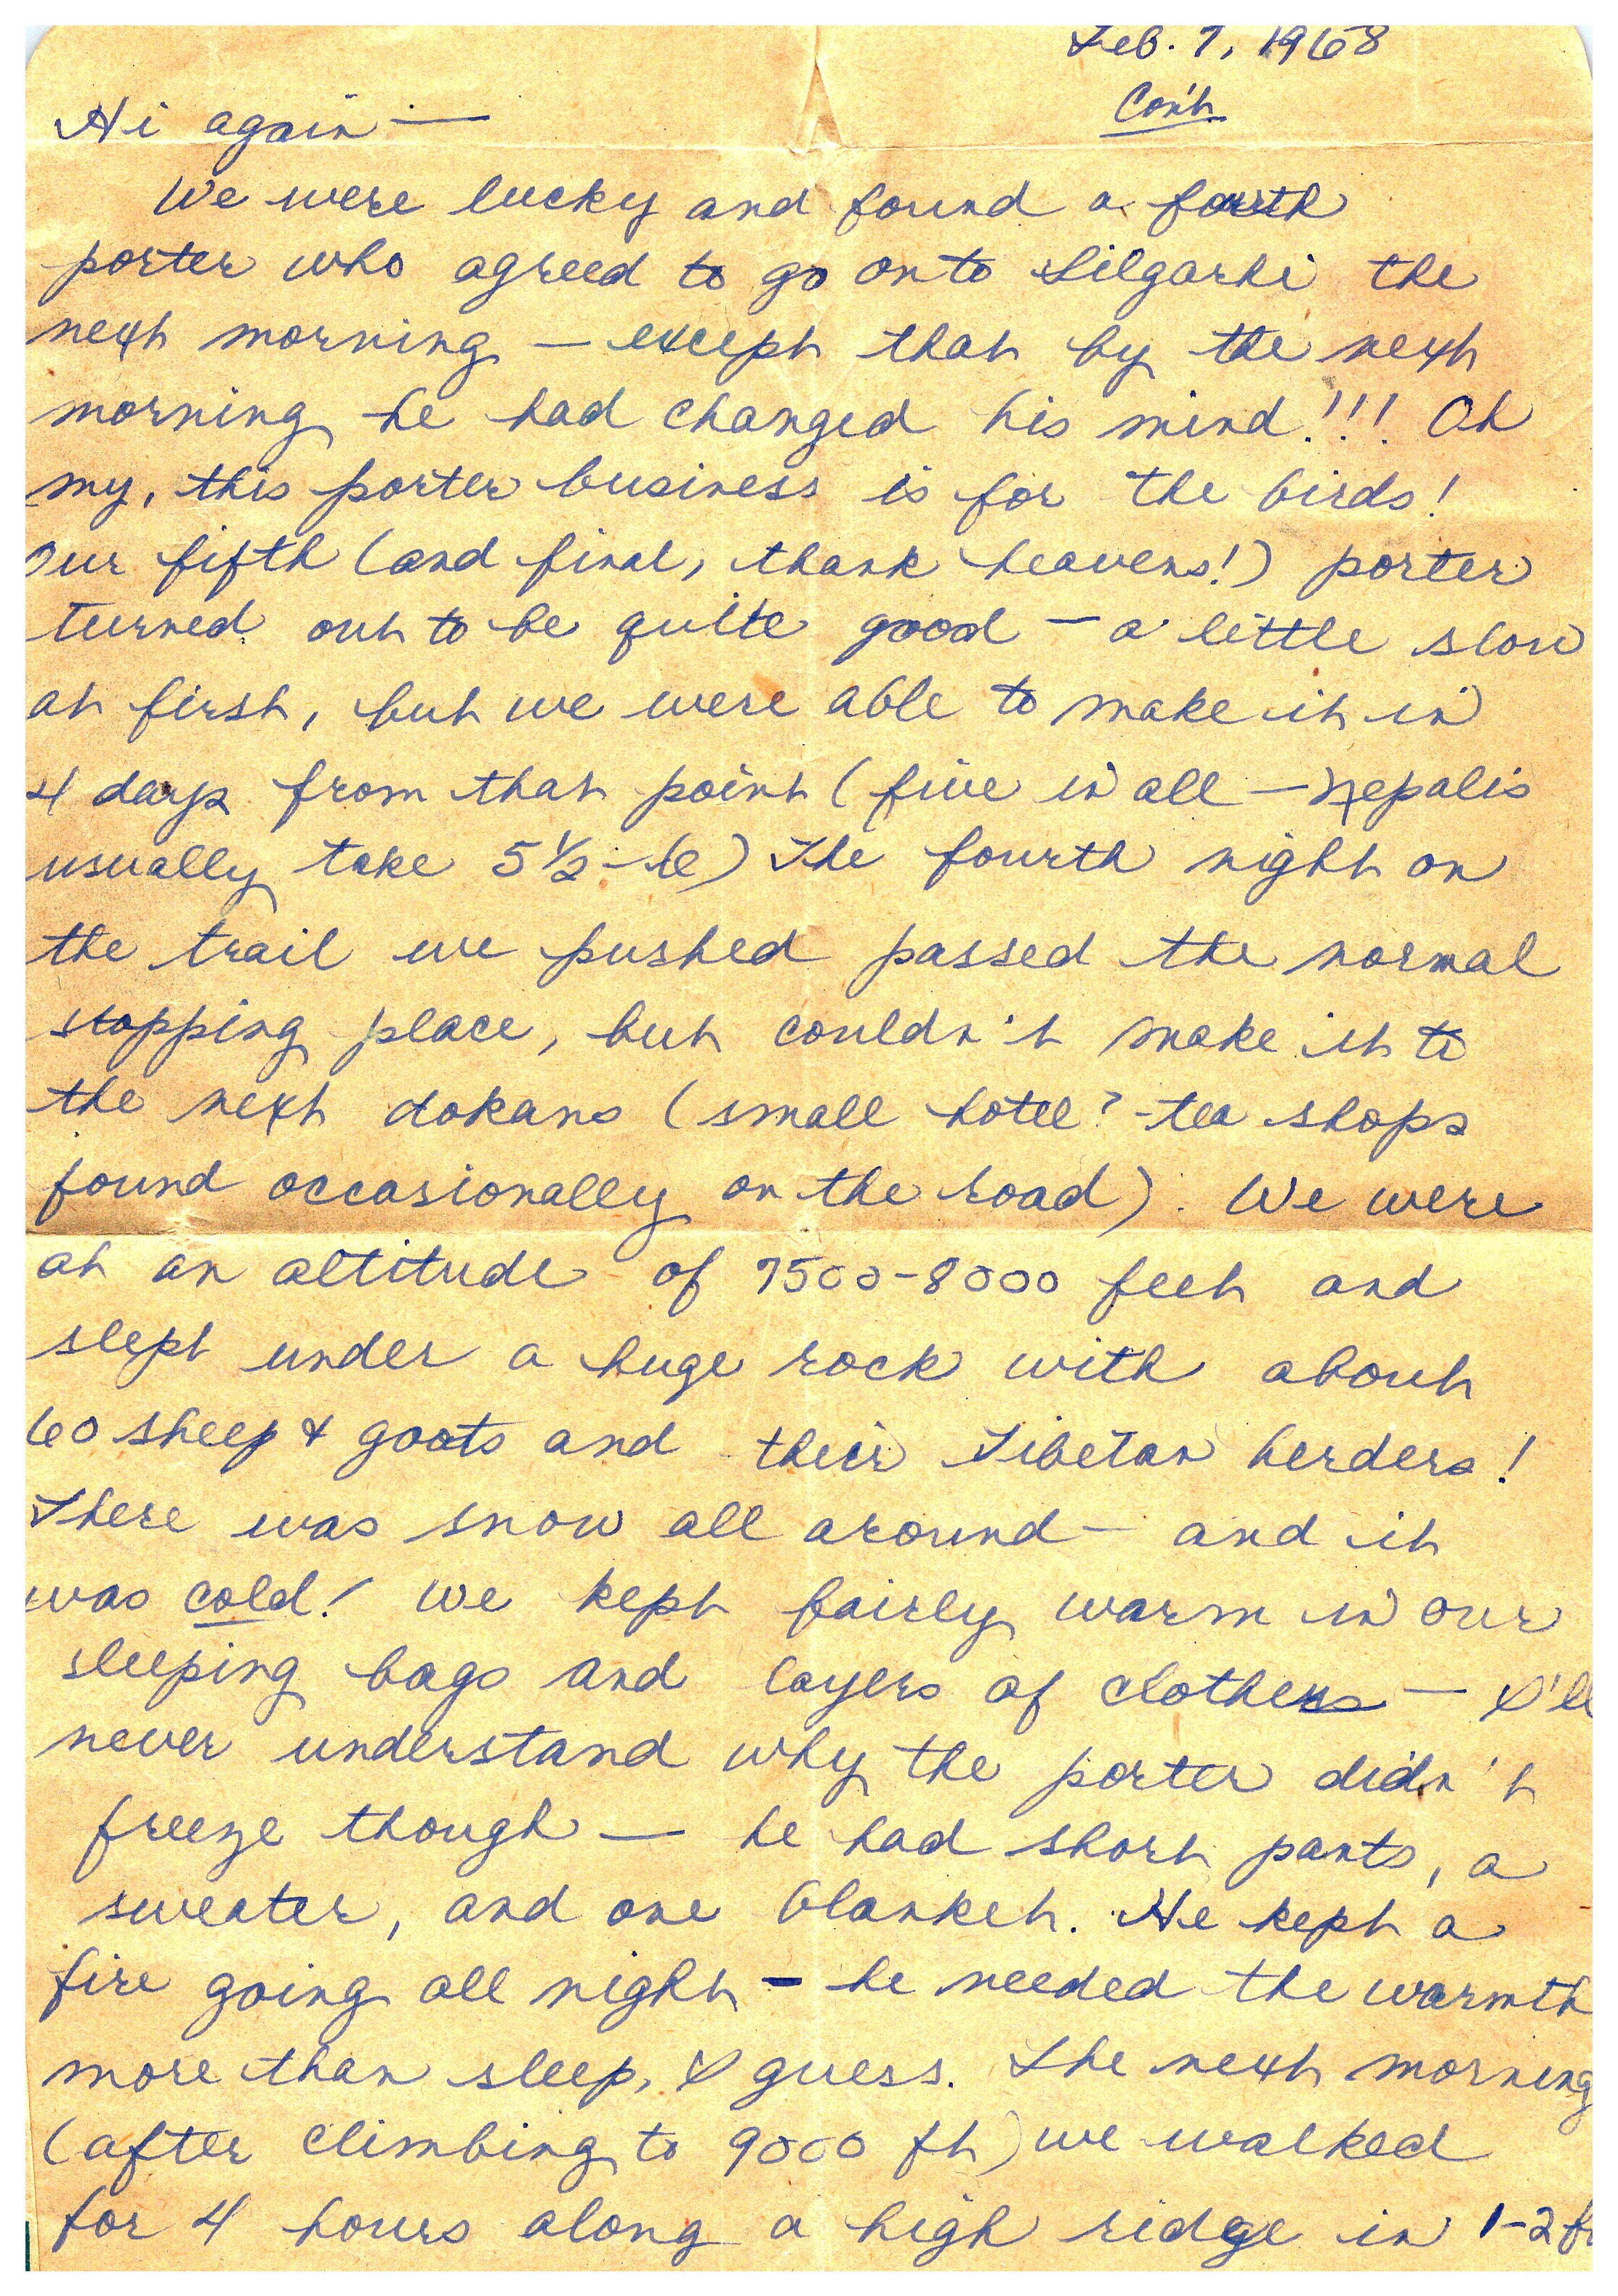 Feb. 7, 1968
Con't
Hi again —
We were lucky and found a fourth
porter who agreed to go onto Silgarhi the
next morning — except that by the next
morning he had changed his mind!!! Oh
my, this porter business is for the birds!
Our fifth (and final, thank heavens!) porter
turned out to be quite good — a little slow
at first, but we were able to make it in
4 days from that point (five in all — Nepalis
usually take 5½-6) The fourth night on
the trail we pushed passed the normal
stopping place, but couldn't make it to
the next dokans (small hotel? - tea shops
found occasionally on the road). We were
at an altitude of 7500-8000 feet and
slept under a huge rock with about
60 sheep & goats and their Tibetan herders!
There was snow all around — and it
was cold! We kept fairly warm in our
sleeping bags and layers of clothes — I'll
never understand why the porter didn't
freeze though — he had short pants, a
sweater, and one blanket. He kept a
fire going all night — he needed the warmth
more than sleep, I guess. The next morning
(after climbing to 9000 ft) we walked
for 4 hours along a high ridge in 1-2